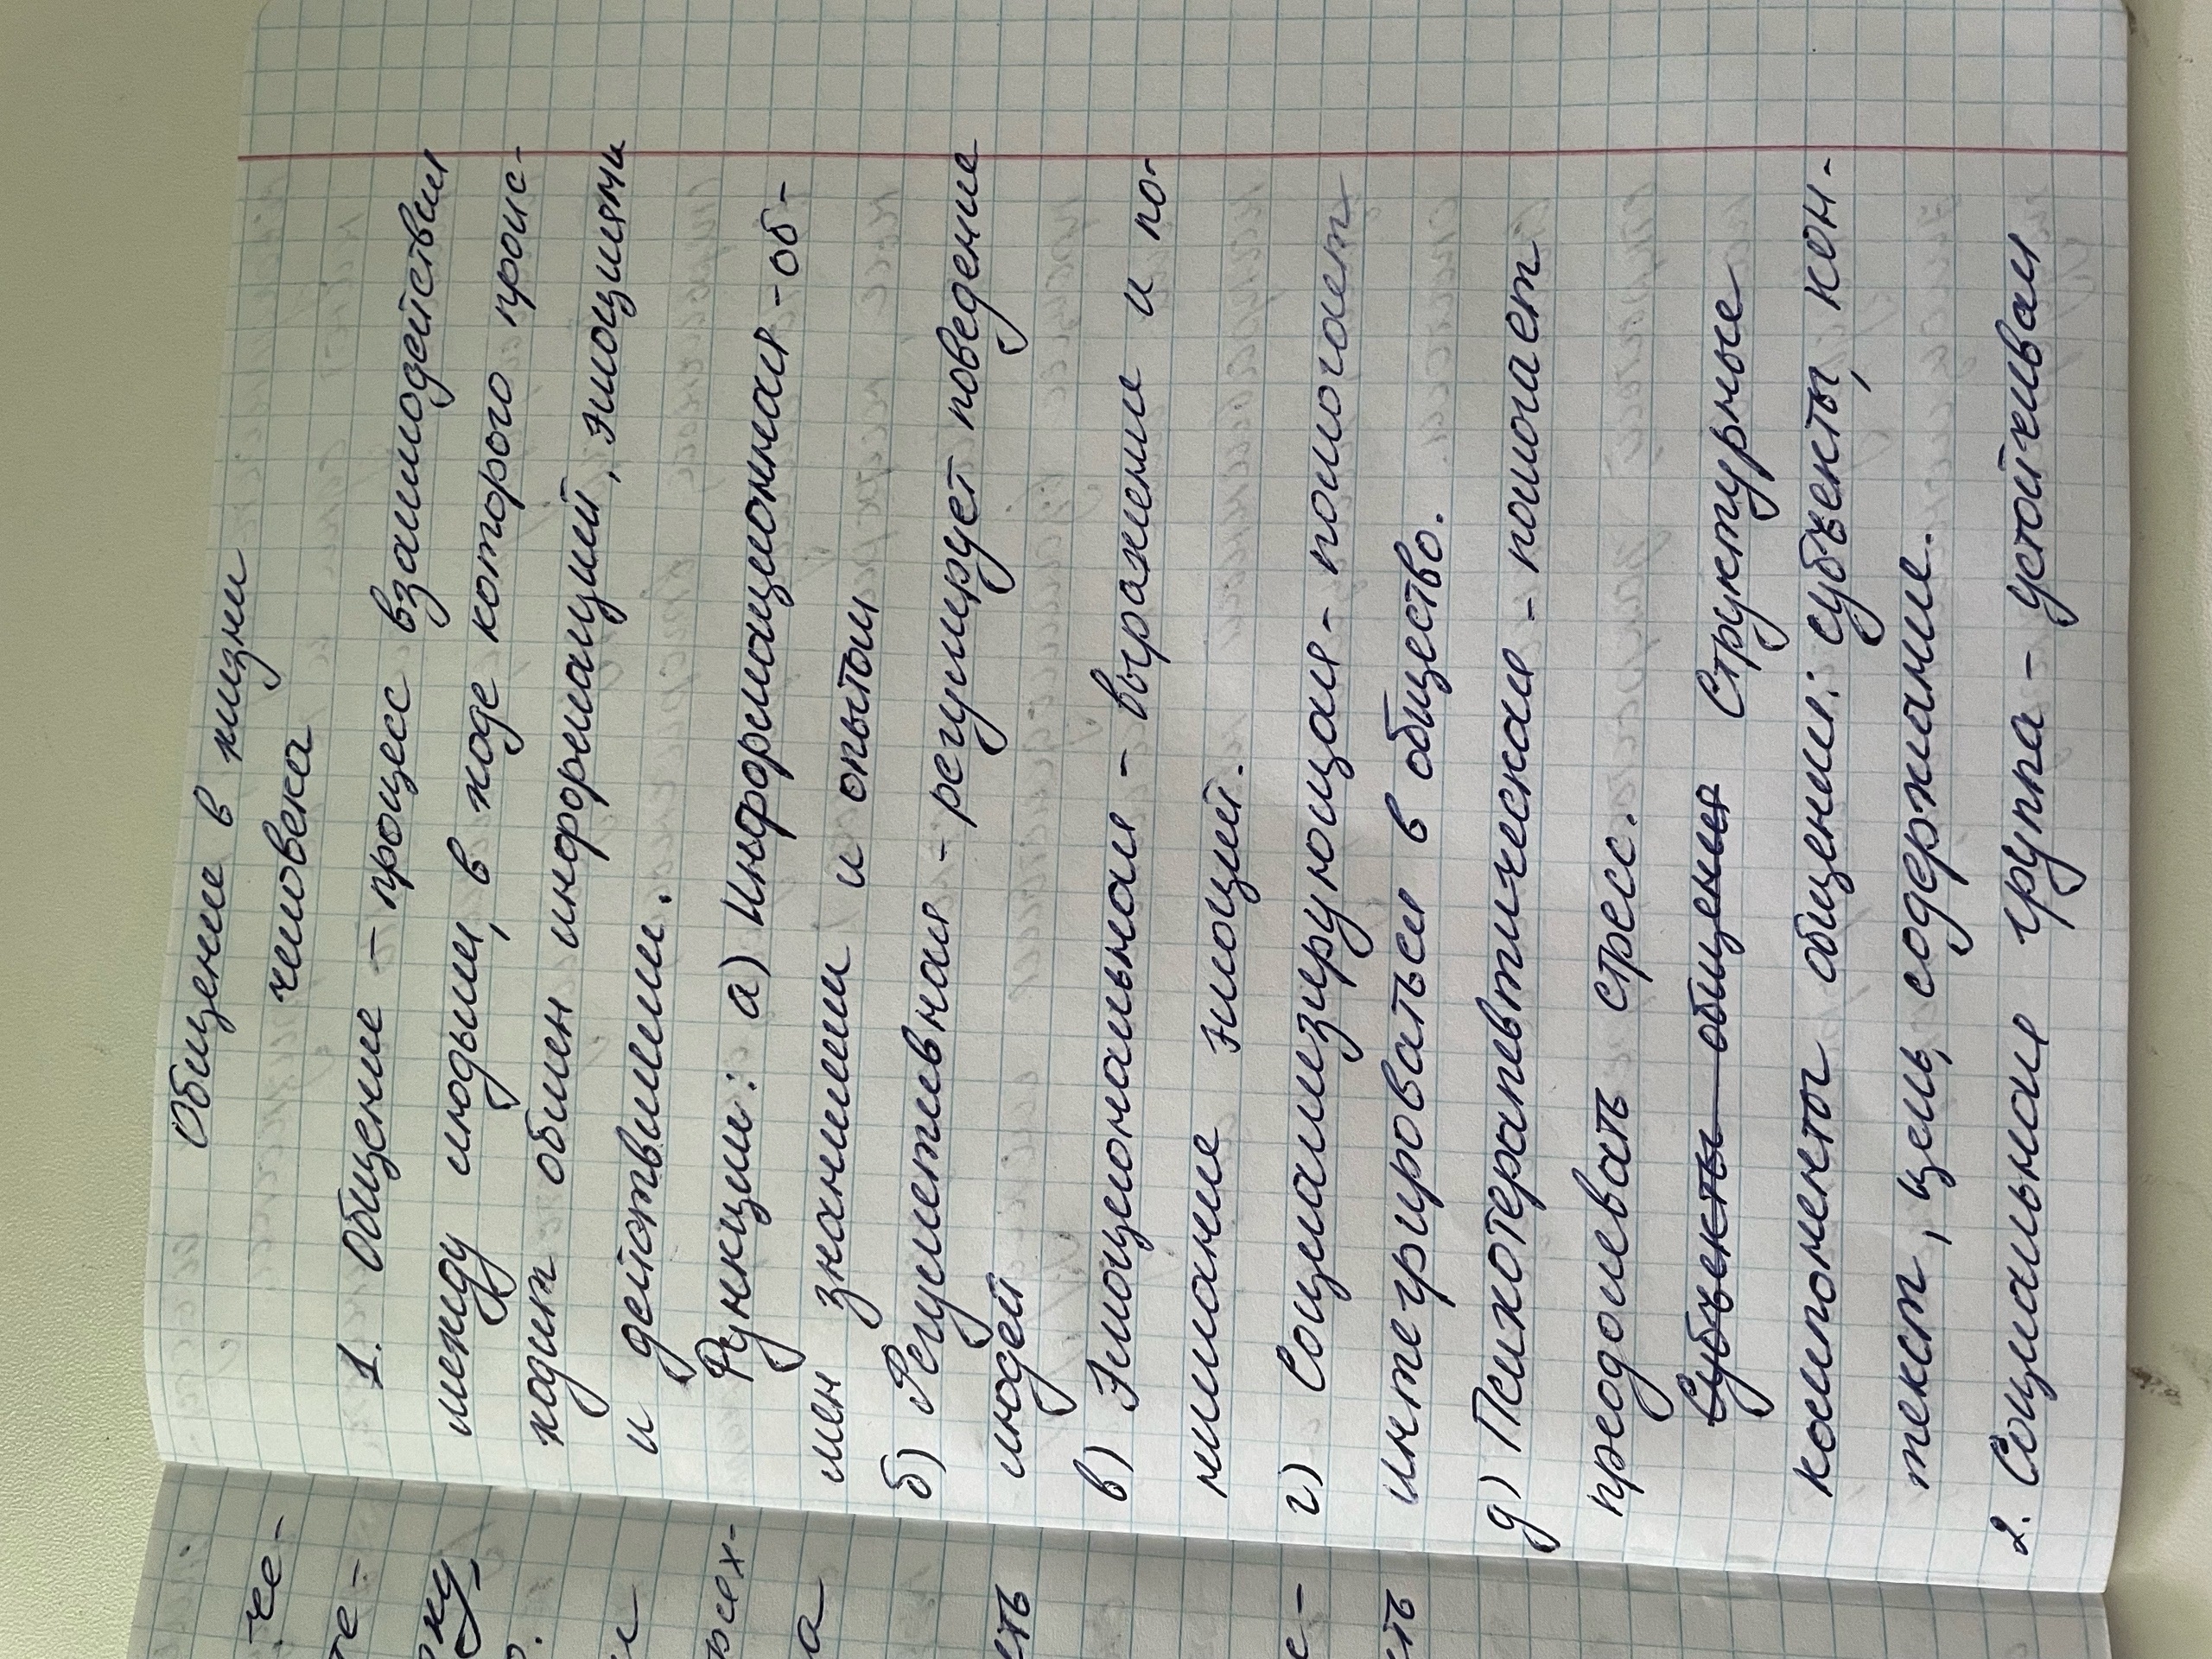 Общение в жизни
человека
1. Общение – процесс взаимодействия
между людьми, в ходе которого проис-
ходит обмен информацией, эмоциями
и действиями.
Функции: а) Информационная - об-
мен знаниями и опытом
б) Регулятивная - регулирует поведение
людей
в) Эмоциональная - выражение и по-
нимание эмоций.
г) Социализирующая - помогает
интегрироваться в общество.
д) Психотерапевтическая - помогает
преодолевать стресс.
Субъекты общения Структурные
компоненты общения: субъекты, кон-
текст, цель, содержание.
2. Социальная группа - устойчивая
че-
те-
ку,
сех-
а
сть
е-
сть